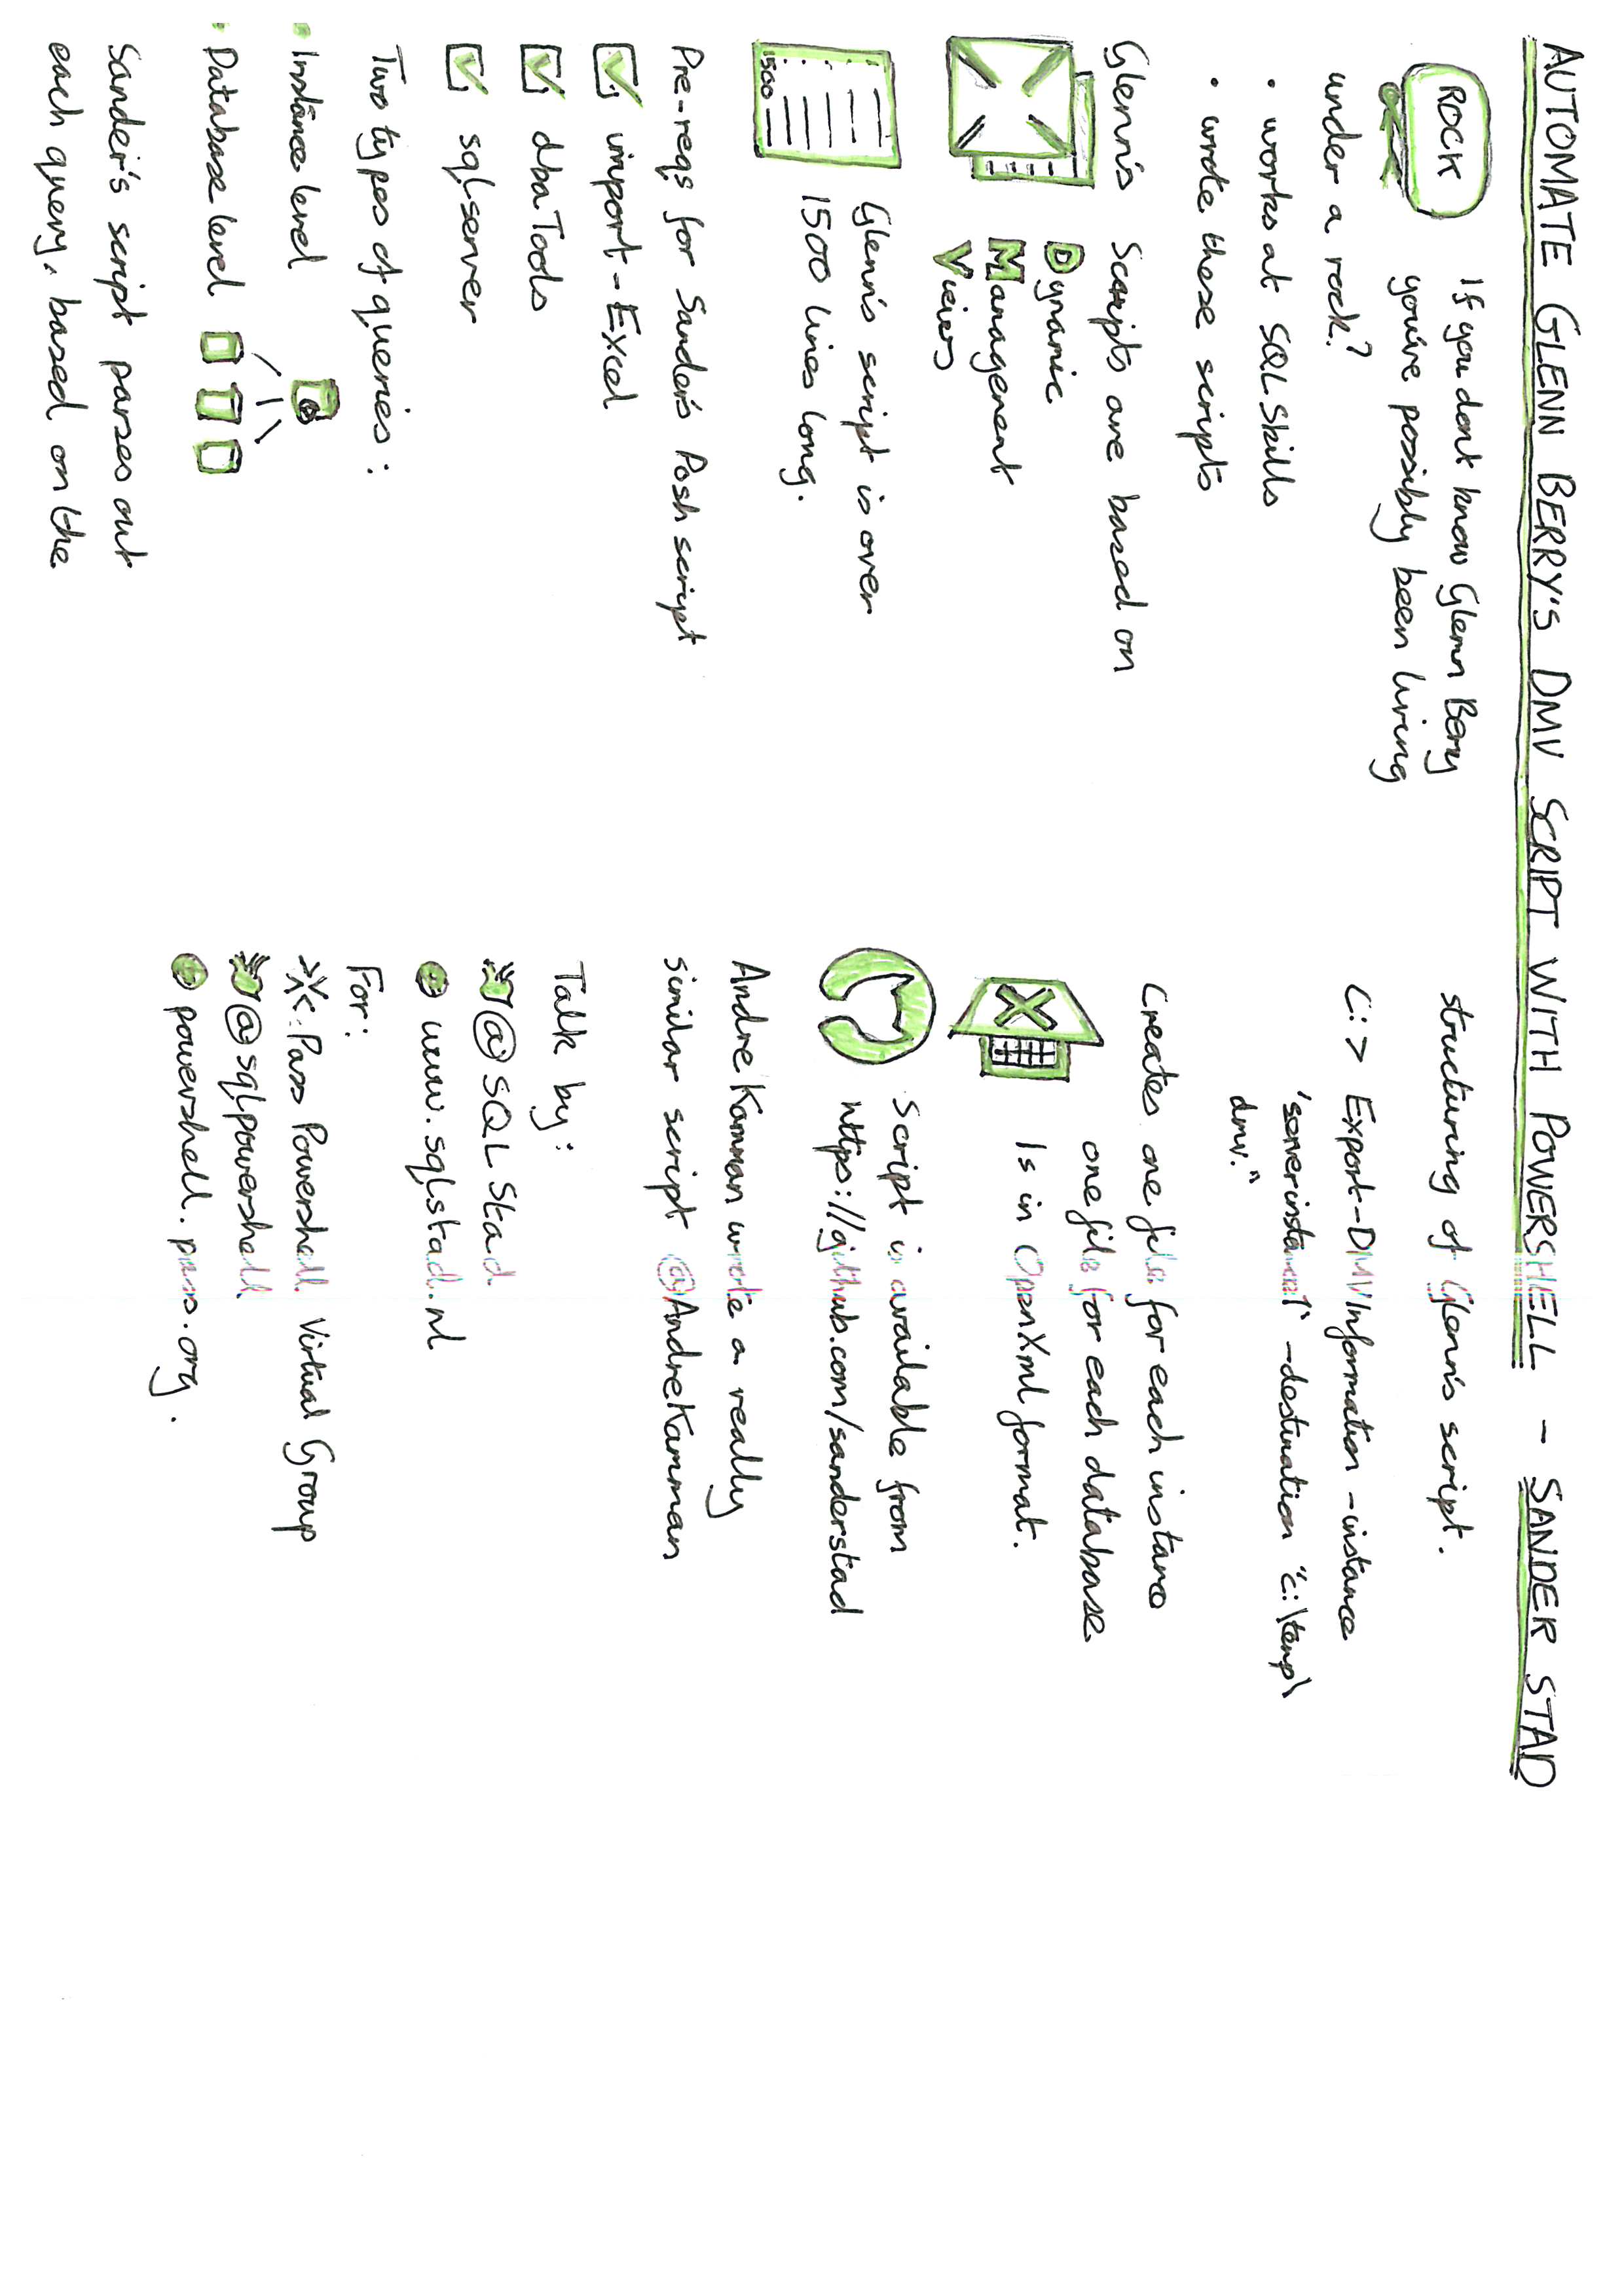 AUTOMATE GLENN BERRY'S DMV SCRIPT WITH POWERSHELL - SANDER STAD
ROCK
If you dont know Glenn Berry
you're possibly been living
under a rock?
• works at SQLSkills
• wrote these scripts
Glenn's Scripts are based on
Dynamic
Management
Views
Glenn's script is over
1500 lines long.
1500
Pre-reqs for Sander's Posh script
import-Excel
dbaTools
sqlserver
Two types of queries:
• Instance level
• Database level
Sander's script parses out
each query, based on the
structuring of Glenn's script.
C:> Export-DMVInformation -instance
'serverinstance1' -destination "c:\temp\
dmv."
Creates one file for each instance
one file for each database
X
Is in OpenXml format.
Script is available from
https://github.com/sanderstad
Andre Kamman wrote a really
similar script @AndreKamman
Talk by:
@SQLStad
www.sqlstad.nl
For:
Pass Powershell Virtual Group
@sqlpowershell
powershell.pass.org.